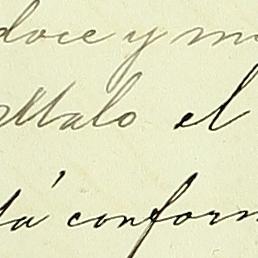 doce y m
Malo el
tá conform